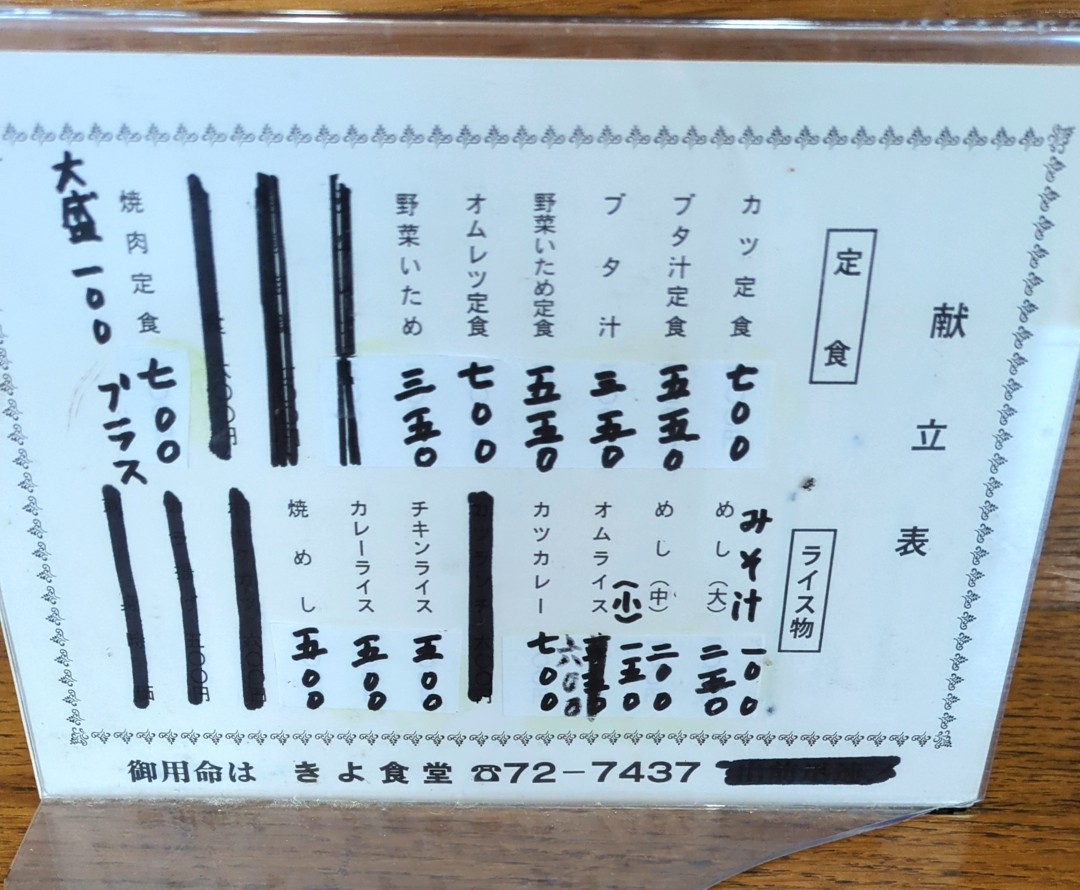 献立表
定食
カツ定食 七〇〇
ブタ汁定食 五五〇
ブタ汁 三五〇
野菜いため定食 五五〇
オムレツ定食 七〇〇
野菜いため 三五〇
焼肉定食 七〇〇
大盛一〇〇
プラス
ライス物
みそ汁 一〇〇
めし(大) 二五〇
めし(中) 二〇〇
(小) 一五〇
オムライス 六〇〇
カツカレー 七〇〇
チキンライス 五〇〇
カレーライス 五〇〇
焼めし 五〇〇
御用命は きよ食堂 ☎72-7437